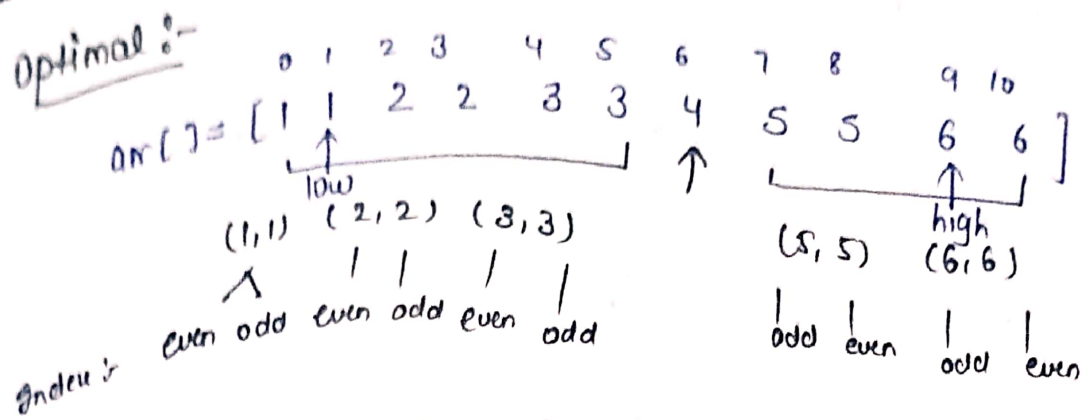 Optimal :-
0 1 2 3 4 5 6 7 8 9 10
arr[] = [1 1 2 2 3 3 4 5 5 6 6]
low high
(1,1) (2,2) (3,3) (5,5) (6,6)
Index :- even odd even odd even odd odd even odd even